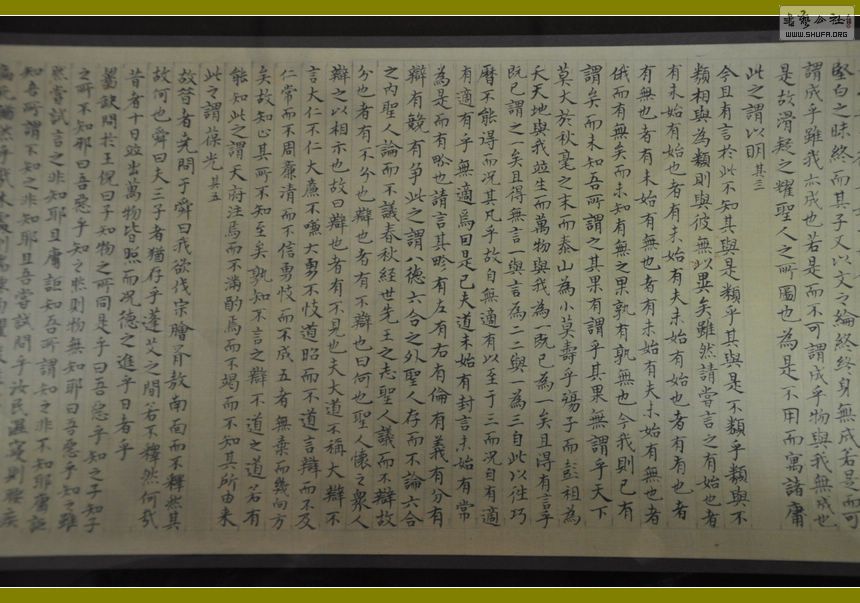 堅白之昧終而其子又以文之綸終終身無成若是而可
謂成乎雖我亦成也若是而不可謂成乎物與我無成也
是故滑疑之耀聖人之所圖也為是不用而寓諸庸
此之謂以明 其三
今且有言於此不知其與是類乎其與是不類乎類與不
類相與為類則與彼無以異矣雖然請嘗言之有始也者
有未始有始也者有未始有夫未始有始也者有有也者
有無也者有未始有無也者有未始有夫未始有無也者
俄而有無矣而未知有無之果孰有孰無也今我則已有
謂矣而未知吾所謂之其果有謂乎其果無謂乎天下
莫大於秋毫之末而泰山為小莫壽乎殤子而彭祖為
夭天地與我竝生而萬物與我為一既已為一矣且得有言乎
既已謂之一矣且得無言一與言為二二與一為三自此以往巧
曆不能得而況其凡乎故自無適有以至于三而況自有適
有適有乎無適焉因是已夫道未始有封言未始有常
為是而有畛也請言其畛有左有右有倫有義有分有
辯有競有爭此之謂八德六合之外聖人存而不論六合
之內聖人論而不議春秋經世先王之志聖人議而不辯故
分也者有不分也辯也者有不辯也曰何也聖人懷之衆人
辯之以相示也故曰辯也者有不見也夫大道不稱大辯不
言大仁不仁大廉不嗛大勇不忮道昭而不道言辯而不及
仁常而不周廉清而不信勇忮而不成五者無棄而幾向方
矣故知止其所不知至矣孰知不言之辯不道之道若有
能知此之謂天府注焉而不滿酌焉而不竭而不知其所由來
此之謂葆光 其五
故昔者堯問于舜曰我欲伐宗膾胥敖南面而不釋然其
故何也舜曰夫三子者猶存乎蓬艾之間若不釋然何哉
昔者十日竝出萬物皆照而況德之進乎日者乎
齧缺問於王倪曰子知物之所同是乎曰吾惡乎知之子知子
之所不知邪曰吾惡乎知之然則物無知耶曰吾惡乎知之雖
然嘗試言之非知耶且庸詎知吾所謂知之非不知耶庸詎
知吾所謂不知之非知耶且吾嘗試問乎汝民溼寢則腰疾
書藝公社
WWW.SHUFA.ORG